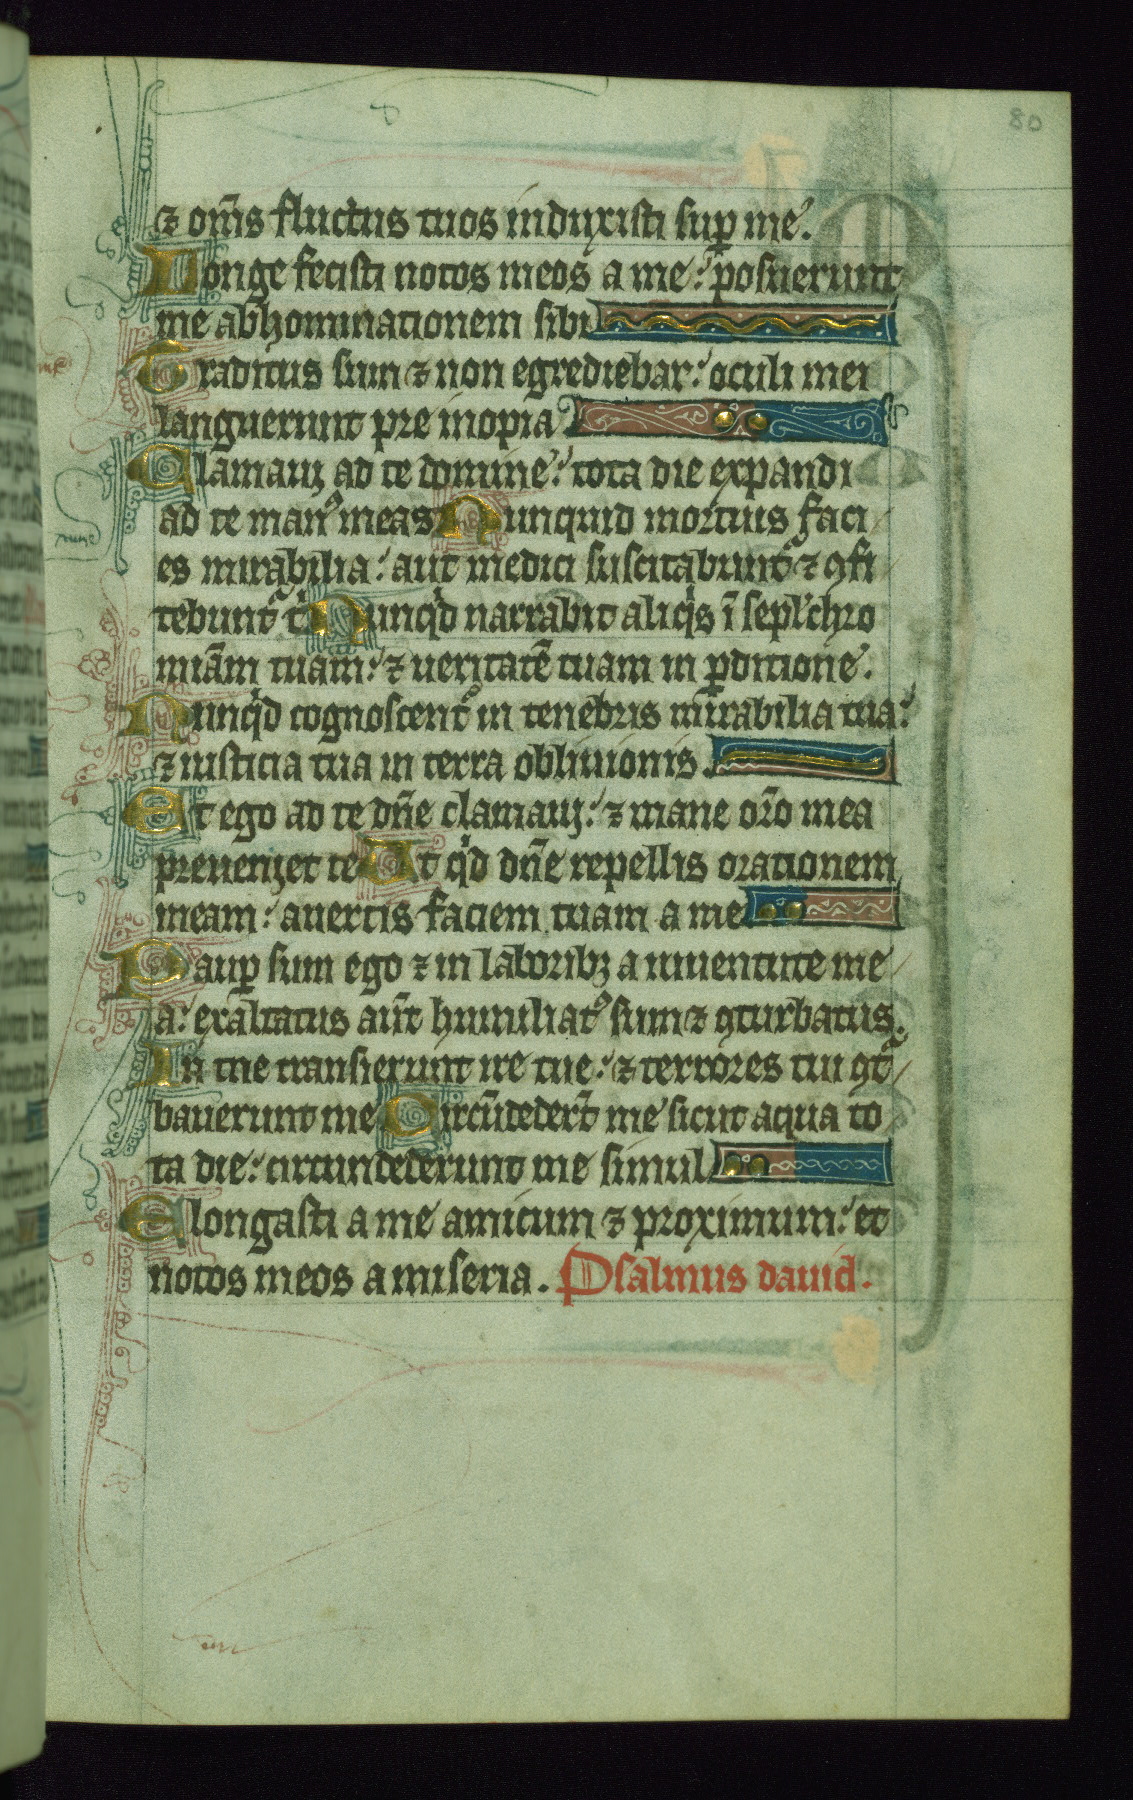 80
⁊ om̃s fluctus tuos induxisti sup̱ me.
Longe fecisti notos meos a me: posuerunt
me abhominationem sibi
Traditus sum ⁊ non egrediebar: oculi mei
languerunt pre inopia
Clamauj ad te domine: tota die expandi
ad te manꝰ meas Nunquid mortuis faci
es mirabilia: aut medici suscitabunt᷑ ⁊ ꝯfi
tebunt᷑ t̾ Nunqͥd narrabit aliqͥs ĩ sepl̾chro
miãm tuam: ⁊ ueritatẽ tuam in ꝑditione.
Nunqͥd cognoscent᷑ in tenebris mirabilia tua:
⁊ iusticia tua in terra obliuionis.
Et ego ad te dñe clamauj: ⁊ mane or̃o mea
preuenjet te Ut qͥd dñe repellis orationem
meam: auertis faciem tuam a me
Paup̱ sum ego ⁊ in laboribꝫ a iuuentute me
a: exaltatus aũt humiliatꝰ sum ⁊ ꝯturbatus.
In me transierunt ire tue: ⁊ terrores tui ꝯt᷑
bauerunt me Circũdeder̃t me sicut aqua to
ta die: circumdederunt me simul
Elongasti a me amicum ⁊ proximum: et
notos meos a miseria. Psalmus dauid.